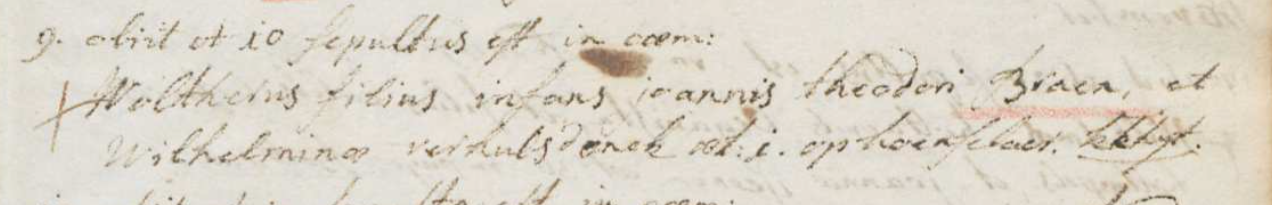 9. obiit et 10 sepultus est in cœm:
Woltherus filius infans ioannis theodori Braen, et
Wilhelminæ verhulsdonck æt: 1. op hoenselaer.
obiit et sepulta est in cœm: